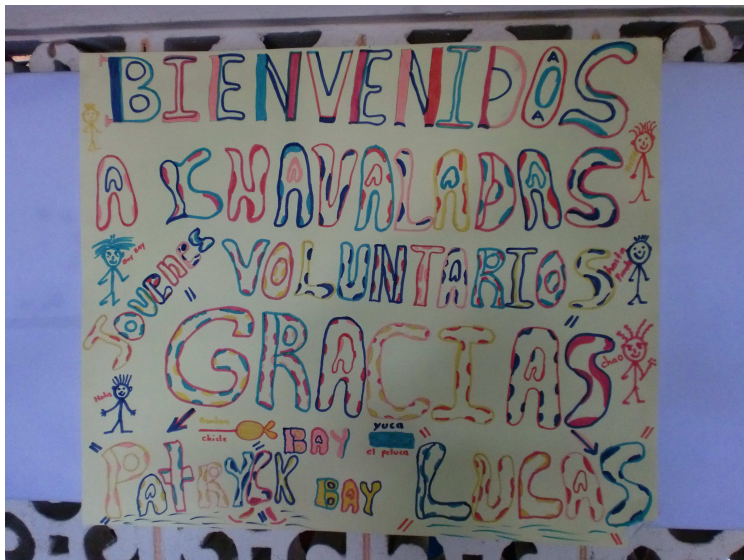 BIENVENIDOS
A CHAVALADAS
JOVENES VOLUNTARIOS
GRACIAS
Hola
chao
chiste
BAY
yuca
el peluca
PATRYCK BAY LUCAS